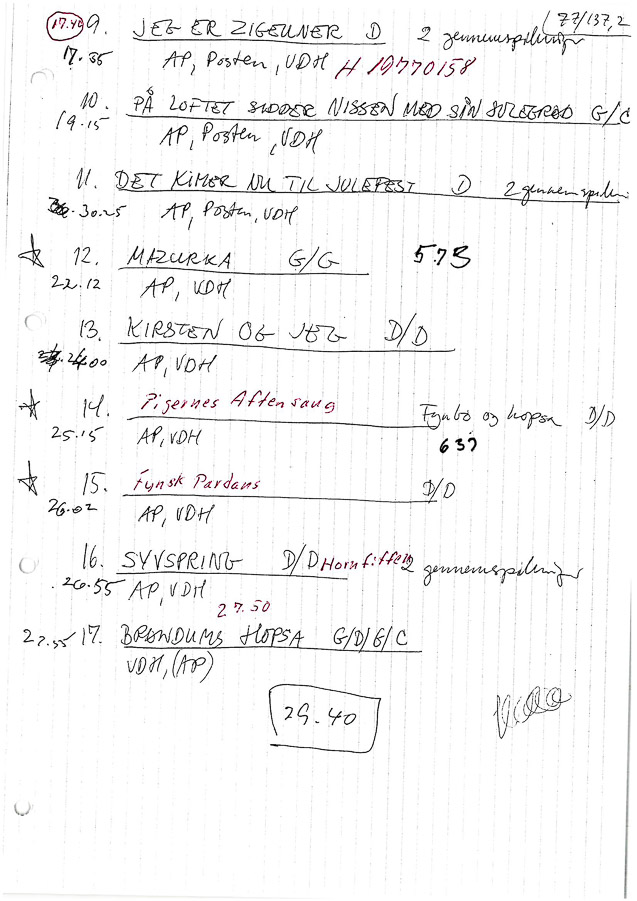 77/137,2
17.42 9. JEG ER ZIGEUNER D 2 gennemspilninger
17.55 AP, Posten, VDH H 19770158
10. PÅ LOFTET SIDDER NISSEN MED SIN JULEGRØD G/C
19.15 AP, Posten, VDH
11. DET KIMER NU TIL JULEFEST D 2 gennemspilni
30.25 AP, Posten, VDH
☆ 12. MAZURKA G/G 573
22.12 AP, VDH
13. KIRSTEN OG JEG D/D
24.00 AP, VDH
☆ 14. Pigernes Aftensang Fynbo og hopsa D/D
25.15 AP, VDH 637
☆ 15. Fynsk Pardans D/D
26.02 AP, VDH
16. SYVSPRING D/D Hornfiffen 2 gennemspilninger
26.55 AP, VDH
27.50
27.55 17. BRANDUMS HOPSA G/D/G/C
VDH, (AP)
29.40